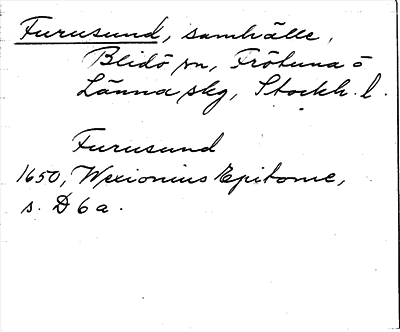 Furusund, samhälle,
Blidö sn, Frötuna o
Länna skg, Stockh. l.
Furusund
1650, Wexionius Epitome,
s. D 6 a.